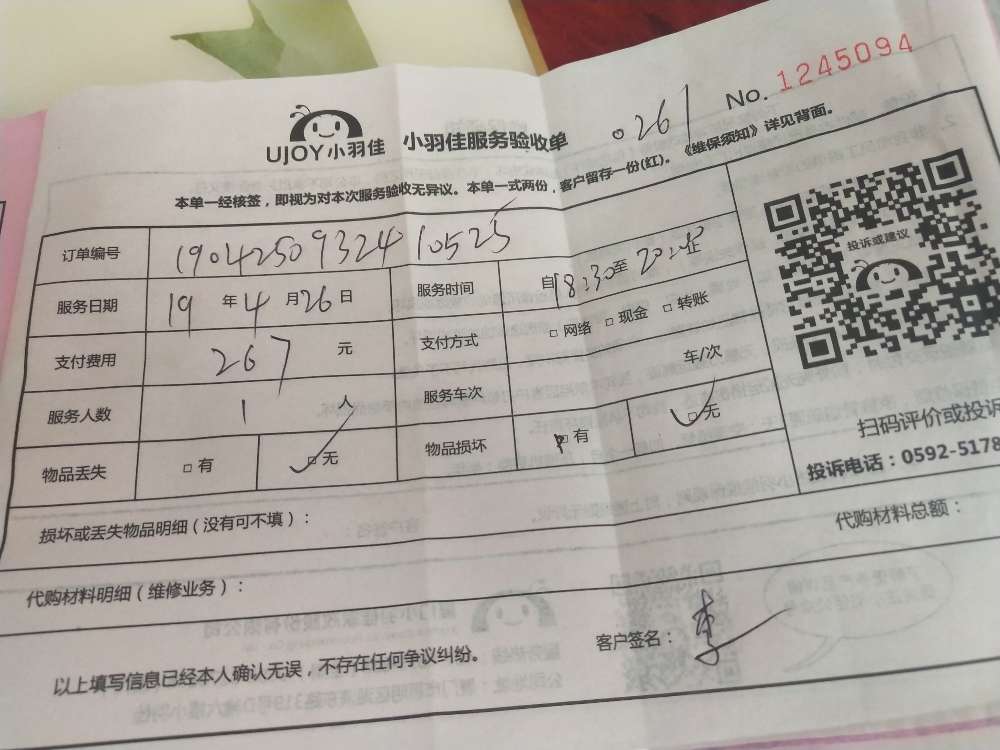 No. 1245094
UJOY小羽佳 小羽佳服务验收单 0261
本单一经核签，即视为对本次服务验收无异议。本单一式两份，客户留存一份(红)。《维保须知》详见背面。
订单编号 1904250932410525
服务日期 19 年 4 月 26 日 服务时间 自18:30至 20:30止
支付费用 267 元 支付方式 □ 网络 □ 现金 □ 转账
服务人数 1 人 服务车次 车/次
物品丢失 □ 有 ✓□ 无 物品损坏 □ 有 ✓□ 无
投诉或建议
扫码评价或投诉
投诉电话：0592-5178
损坏或丢失物品明细（没有可不填）：
代购材料明细（维修业务）： 代购材料总额：
以上填写信息已经本人确认无误，不存在任何争议纠纷。 客户签名：李